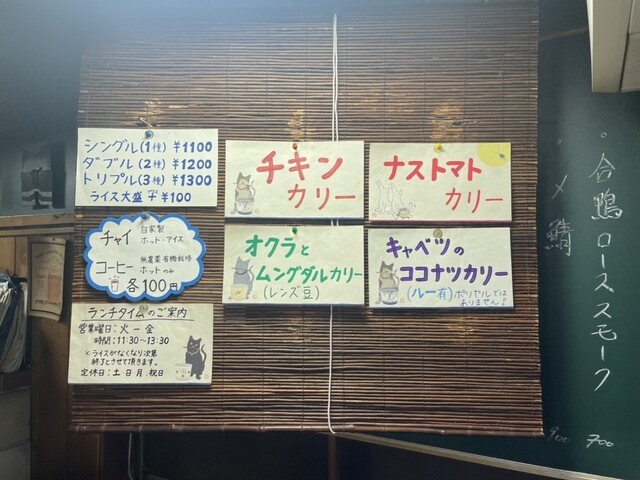 シングル(1種) ¥1100
ダブル(2種) ¥1200
トリプル(3種) ¥1300
ライス大盛 ¥100
チャイ 自家製
ホット・アイス
コーヒー 無農薬有機栽培
ホットのみ
各100円
ランチタイムのご案内
営業曜日:火-金
時間:11:30~13:30
※ライスがなくなり次第
終了とさせて頂きます。
定休日:土.日.月.祝日
チキン
カリー
ナストマト
カリー
オクラと
ムングダルカリー
(レンズ豆)
キャベツの
ココナツカリー
(ルー有) ポリヤルでは
ありません!
・合鴨ローススモーク
700
・〆鯖
900